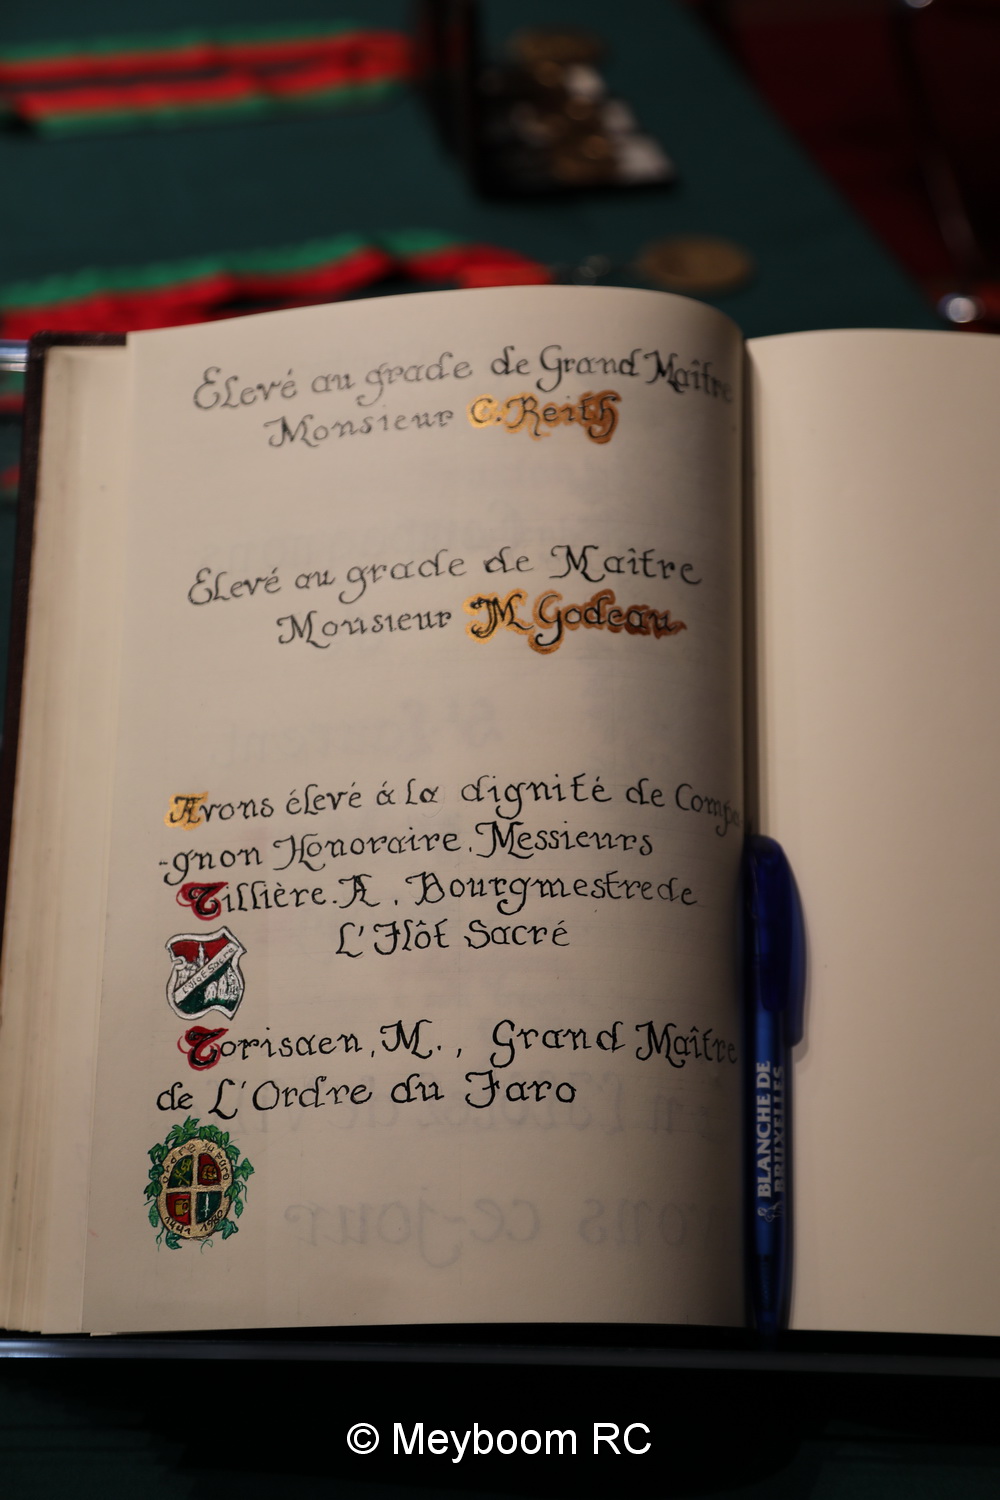 Élevé au grade de Grand Maître
Monsieur C. Reith
Élevé au grade de Maître
Monsieur M Godeau
Avons élevé à la dignité de Compa
-gnon Honoraire, Messieurs
Tillière. A, Bourgmestre de
L'Ilôt Sacré
L'Ilot Sacré
Torisaen, M., Grand Maître
de L'Ordre du Faro
Ordre du Faro
BLANCHE DE
BRUXELLES
© Meyboom RC